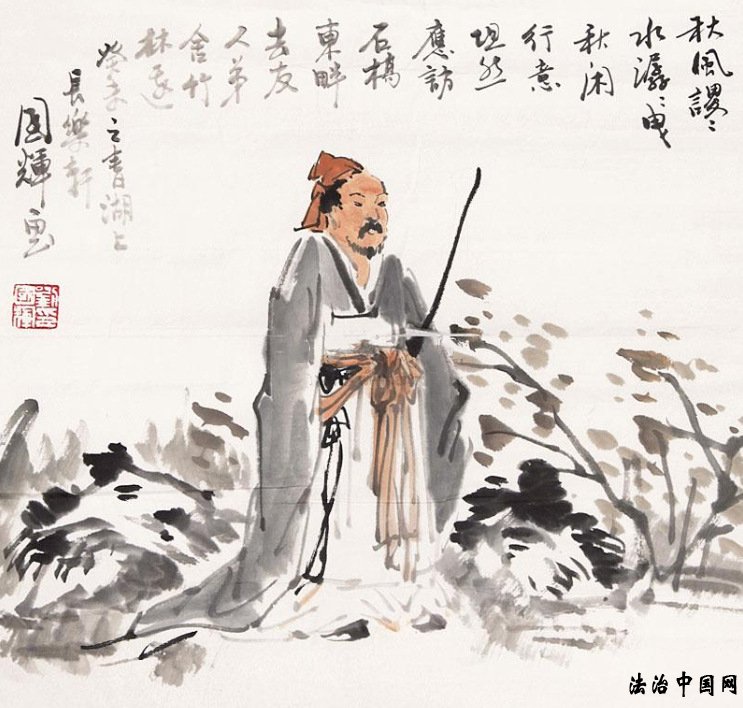 秋風謖〻
水潺〻曳
秋闲
行意
坦然
應訪
石橋
東畔
去友
人茅
舍竹
林邊
癸未之春湖上
長樂軒
國輝画
劉國輝印
法治中国网